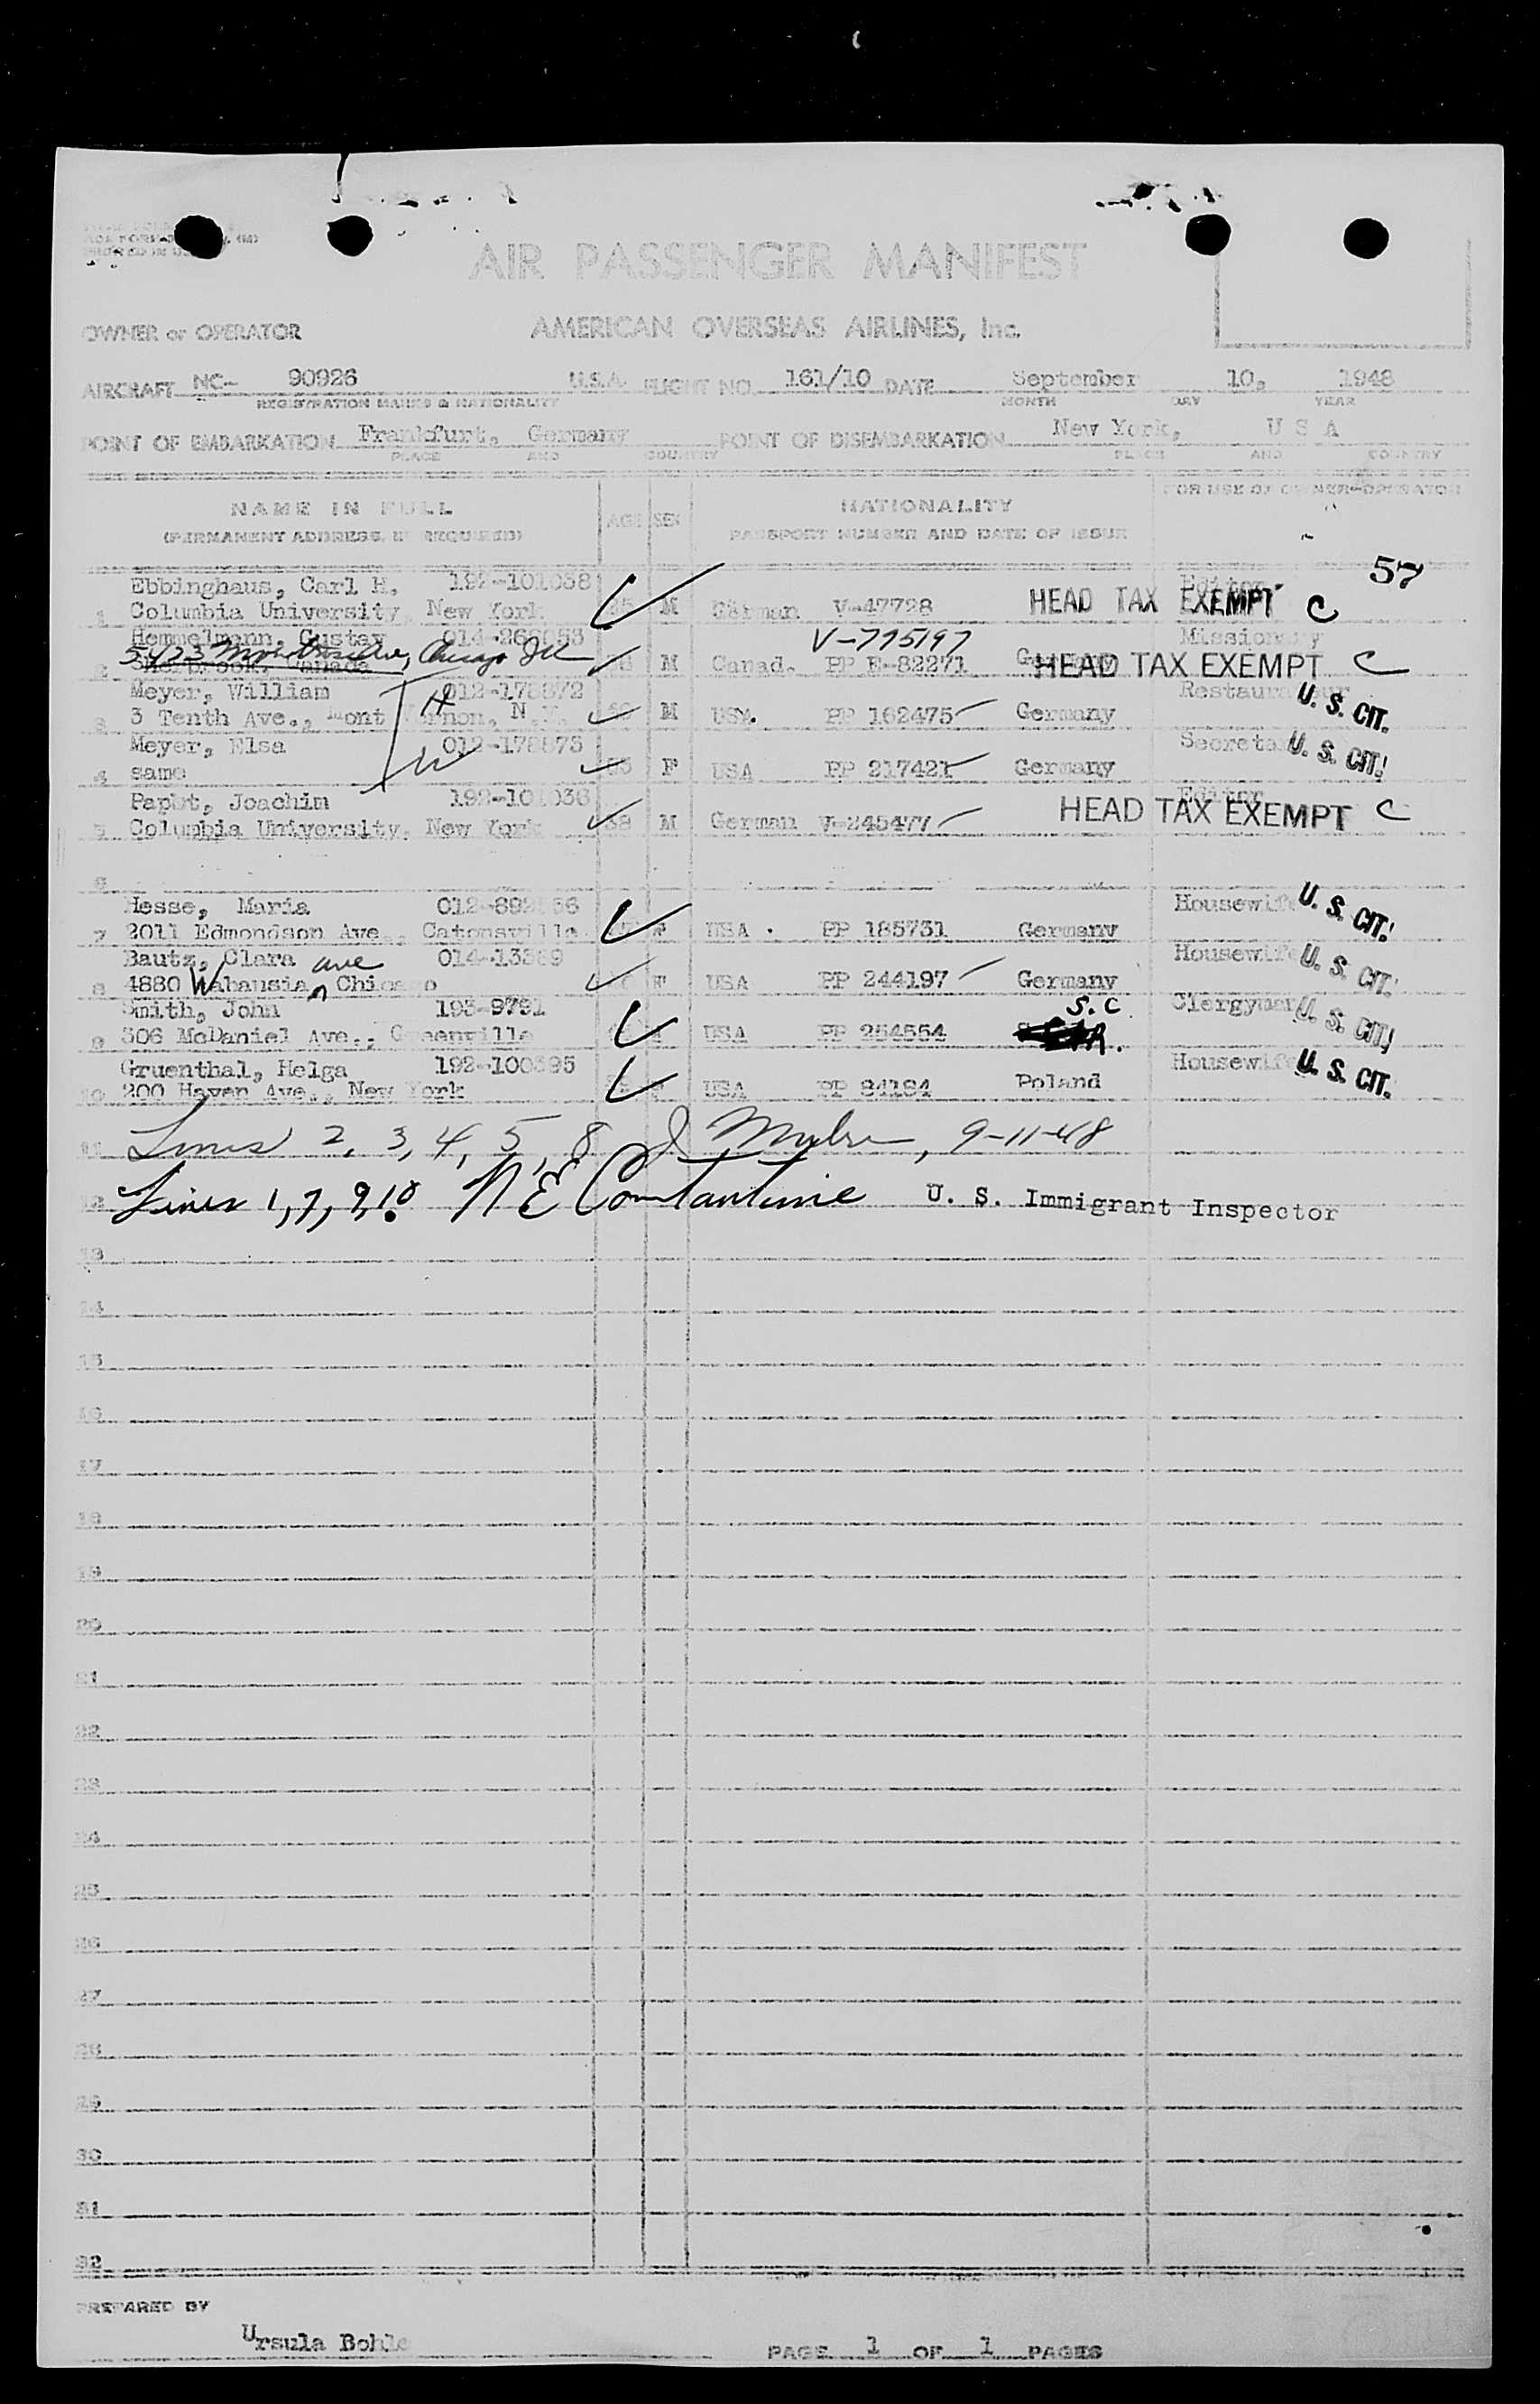 AIR PASSENGER MANIFEST
OWNER or OPERATOR AMERICAN OVERSEAS AIRLINES, Inc.
AIRCRAFT NC- 90926 U.S.A. FLIGHT NO. 161/10 DATE September 10, 1948
REGISTRATION MARKS & NATIONALITY MONTH DAY YEAR
POINT OF EMBARKATION Frankfurt, Germany POINT OF DISEMBARKATION New York, U S A
PLACE AND COUNTRY PLACE AND COUNTRY
NAME IN FULL AGE SEX NATIONALITY FOR USE OF OWNER-OPERATOR
(PERMANENT ADDRESS, IF REQUIRED) PASSPORT NUMBER AND DATE OF ISSUE
57
Ebbinghaus, Carl H. 192-101038 Editor
1 Columbia University, New York M German V-47728 HEAD TAX EXEMPT C
Hemmelmann, Gustav V-775197 Missionary
2 Chicago Ill M Canad. PP E-82271 Germany HEAD TAX EXEMPT C
Meyer, William 012-178872 Restaurateur
3 3 Tenth Ave., Mont Vernon, N.Y. M USA. PP 162475 Germany U. S. CIT.
Meyer, Elsa 012-178873 U. S. CIT.
4 same F USA PP 217421 Germany
Papst, Joachim 192-101036 Editor
5 Columbia University, New York 38 M German V-245477 HEAD TAX EXEMPT C
6
Hesse, Maria Housewife U. S. CIT.
7 2011 Edmondson Ave., Catonsville F USA. PP 185731 Germany
Bautz, Clara ave Housewife U. S. CIT.
8 4880 Wabansia Chicago F USA PP 244197 Germany
Smith, John 193-9791 S.C. Clergyman U. S. CIT.
9 306 McDaniel Ave., Greenville USA PP 254554
Gruenthal, Helga 192-100395 Housewife U. S. CIT.
10 200 Haven Ave., New York USA PP 84184 Poland
11 Lines 2, 3, 4, 5, 8 9-11-48
12 Lines 1, 7, 9, 10 N E Constantine U. S. Immigrant Inspector
13
14
15
16
17
18
19
20
21
22
23
24
25
26
27
28
29
30
31
32
PREPARED BY
Ursula PAGE 1 OF 1 PAGES